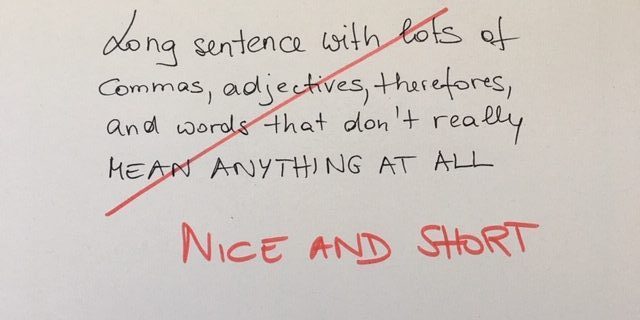 Long sentence with lots of
commas, adjectives, therefores,
and words that don't really
MEAN ANYTHING AT ALL
NICE AND SHORT